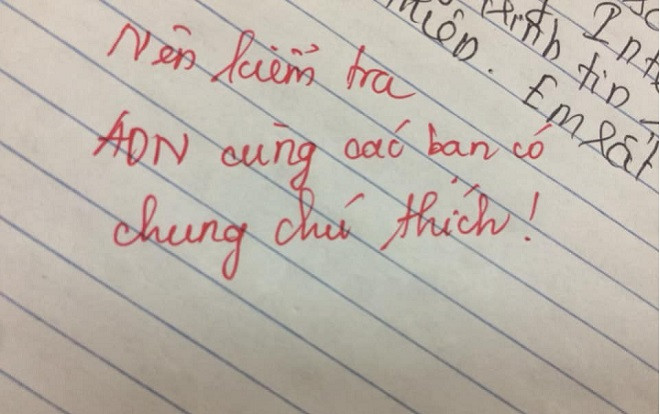 Nên kiểm tra
ADN cùng các bạn có
chung chú thích!
tin
Em rất